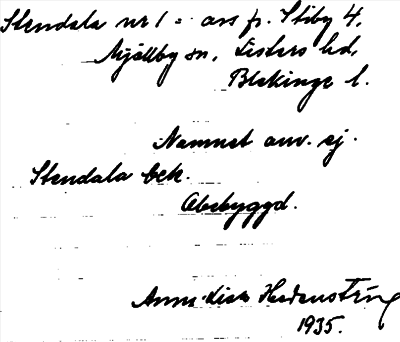 Stendala nr 1 = avs fr. Stiby 4,
Mjällby sn, Listers hd,
Blekinge l.
Namnet anv. ej.
Stendala bek.
Obebyggd.
Anna-Lisa Hedenström
1935.